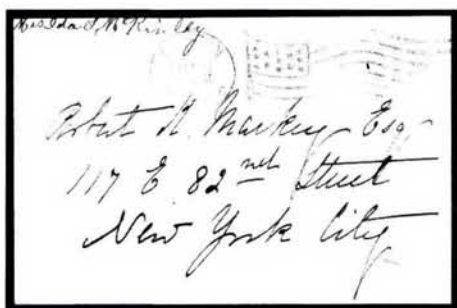 Mrs Ida S. McKinley
Robert H. Markey Esq
117 E. 82nd Street
New York City